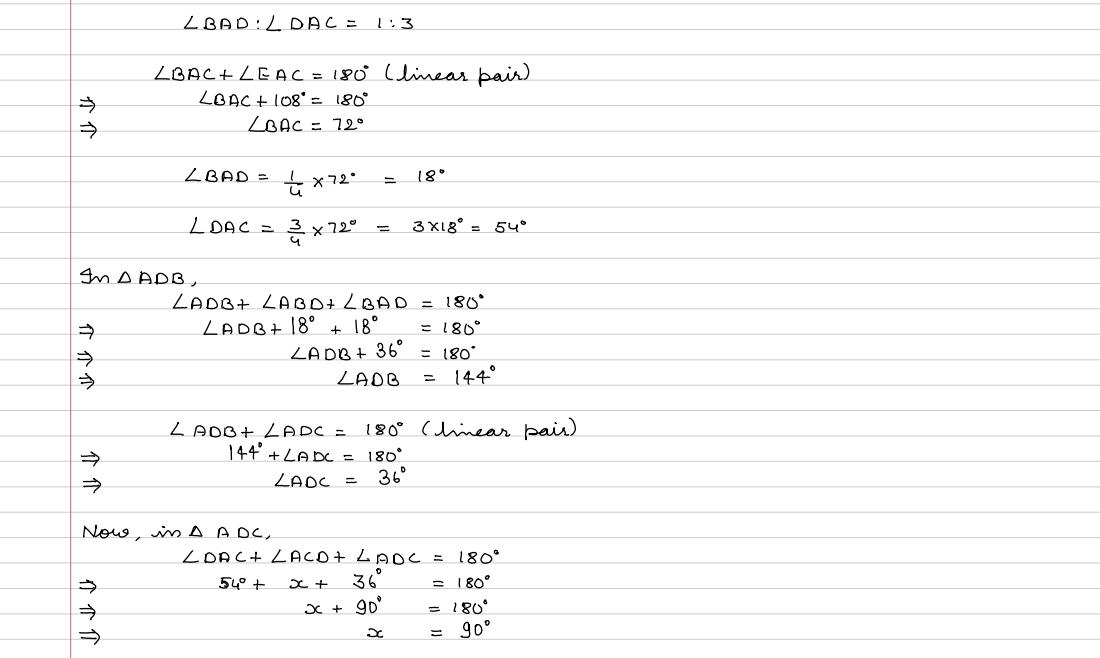 ∠BAD : ∠DAC = 1:3
∠BAC + ∠EAC = 180° (linear pair)
⇒ ∠BAC + 108° = 180°
⇒ ∠BAC = 72°
∠BAD = 1/4 × 72° = 18°
∠DAC = 3/4 × 72° = 3×18° = 54°
In △ADB,
∠ADB + ∠ABD + ∠BAD = 180°
⇒ ∠ADB + 18° + 18° = 180°
⇒ ∠ADB + 36° = 180°
⇒ ∠ADB = 144°
∠ADB + ∠ADC = 180° (linear pair)
⇒ 144° + ∠ADC = 180°
⇒ ∠ADC = 36°
Now, in △ ADC,
∠DAC + ∠ACD + ∠ADC = 180°
⇒ 54° + x + 36° = 180°
⇒ x + 90° = 180°
⇒ x = 90°